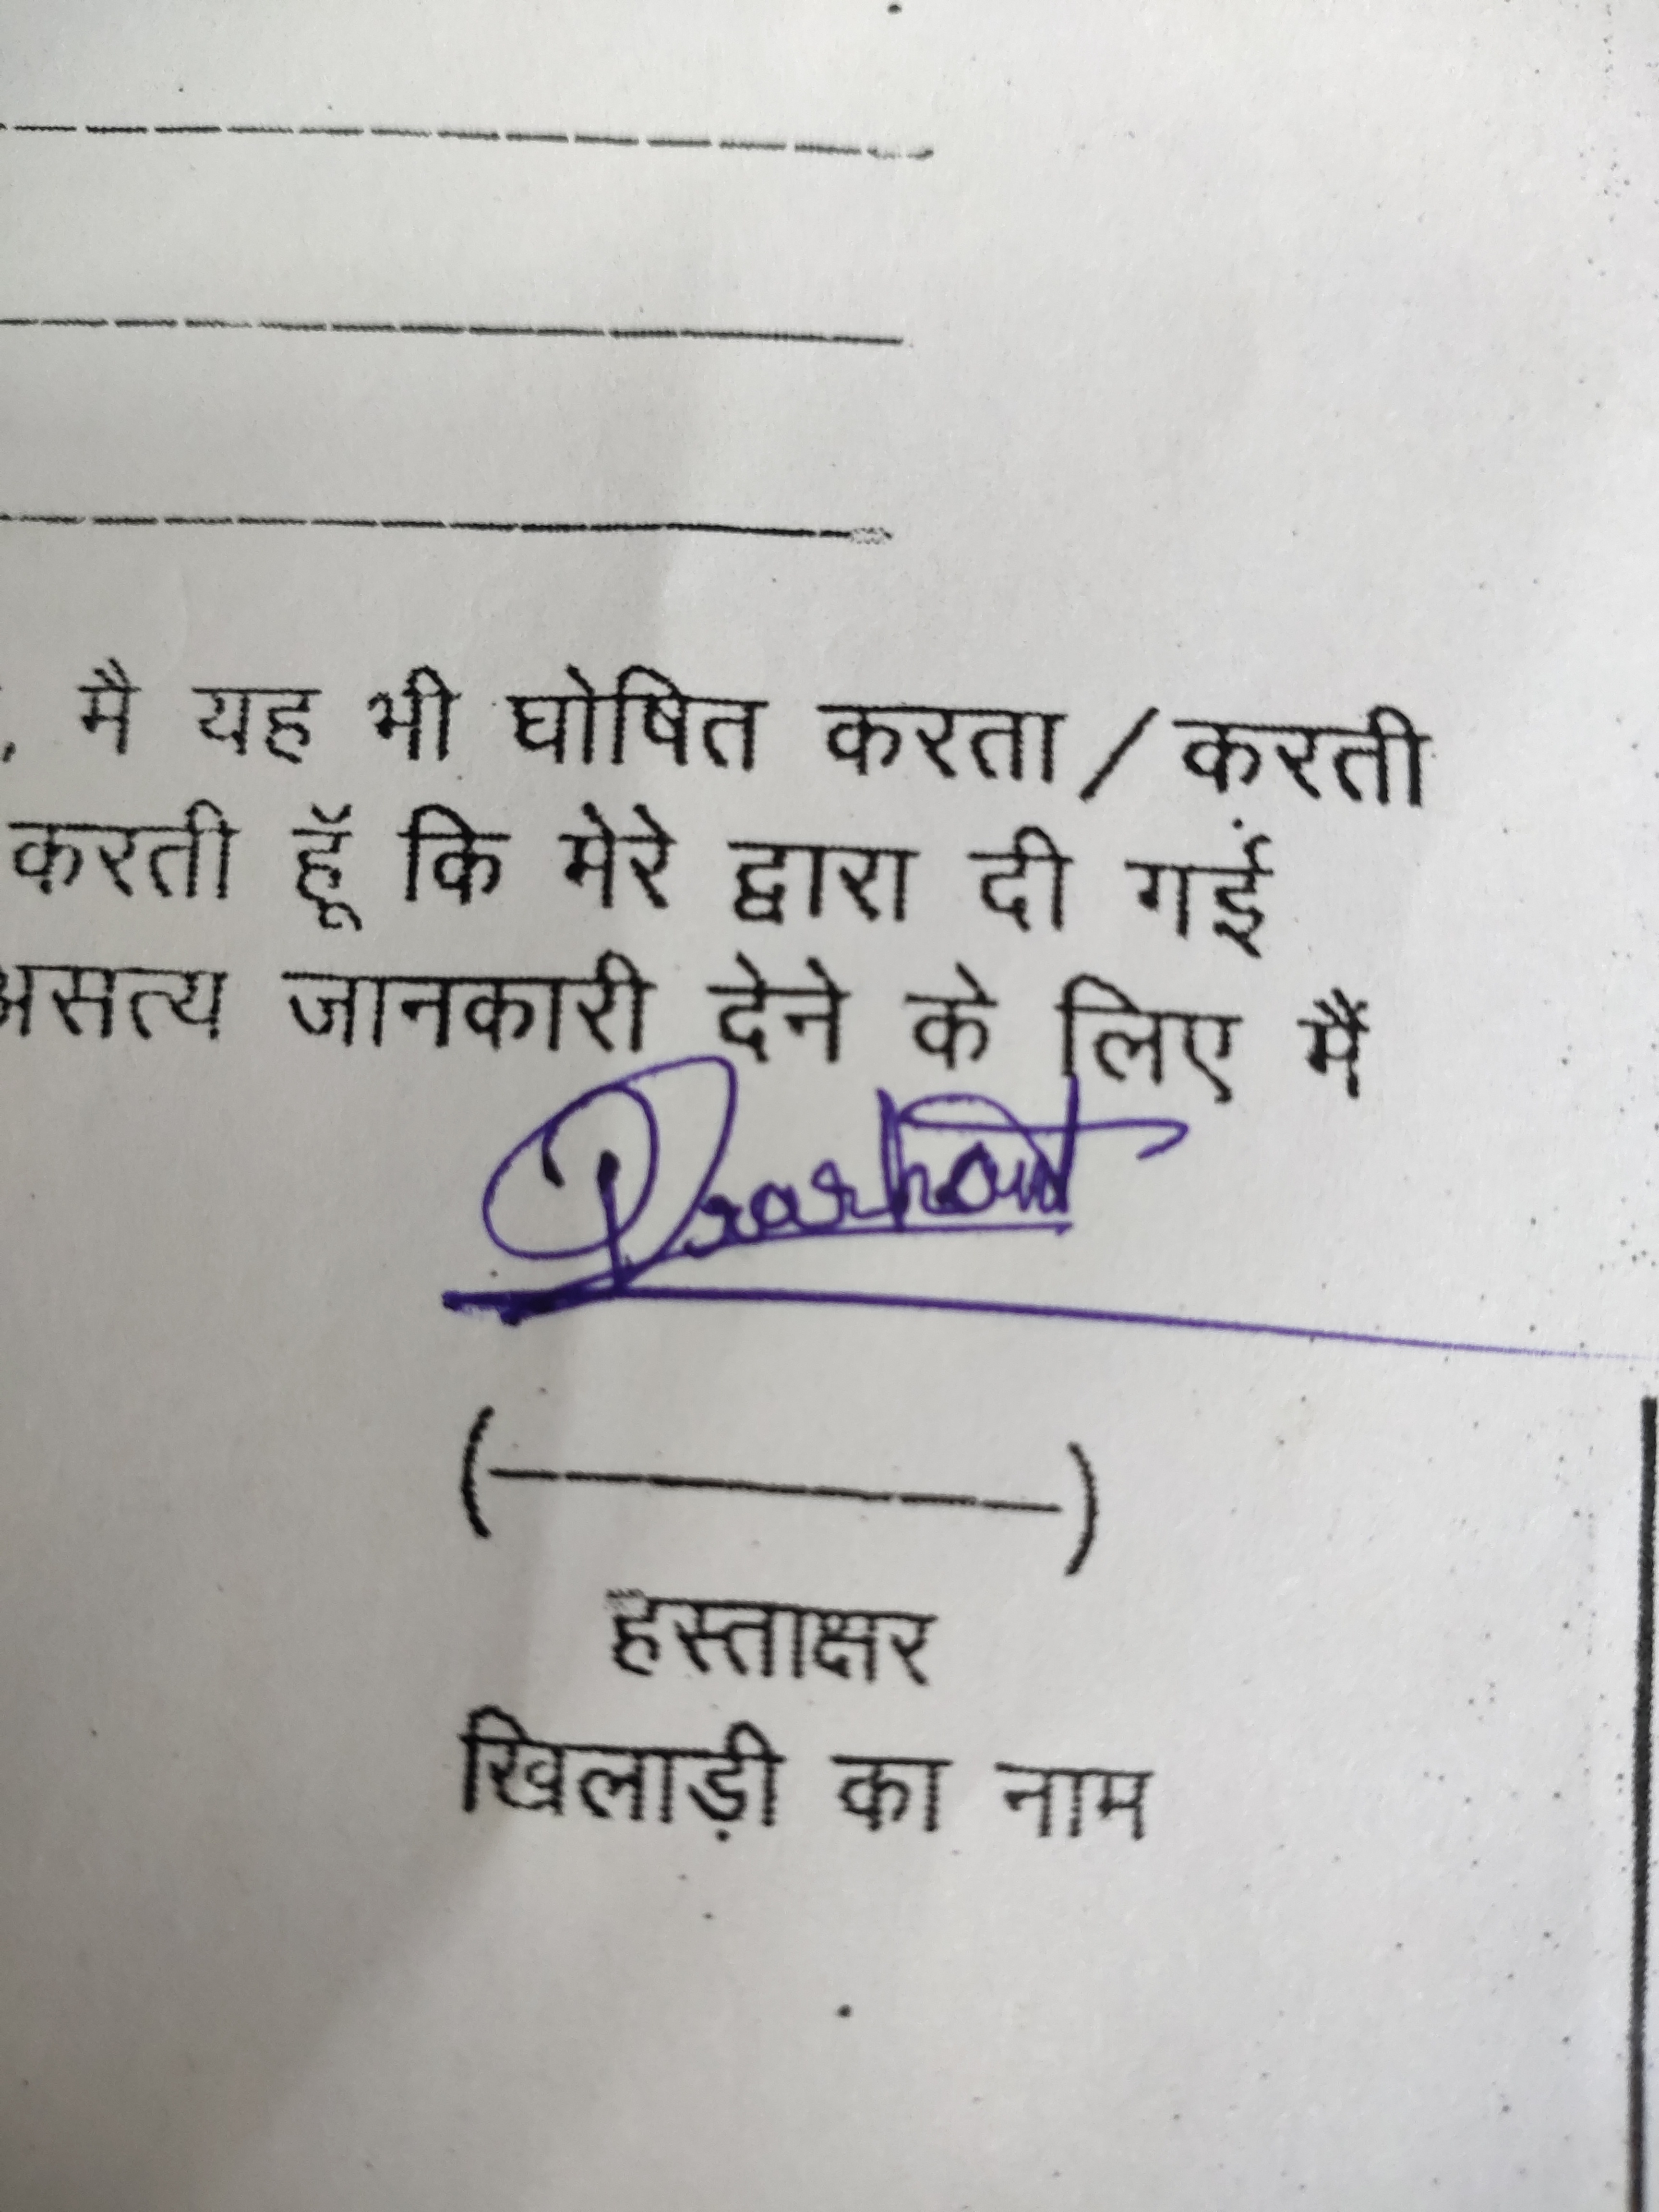 , मै यह भी घोषित करता / करती
करती हूॅ कि मेरे द्वारा दी गई
असत्य जानकारी देने के लिए मैं
Prashant
(---------)
हस्ताक्षर
खिलाड़ी का नाम